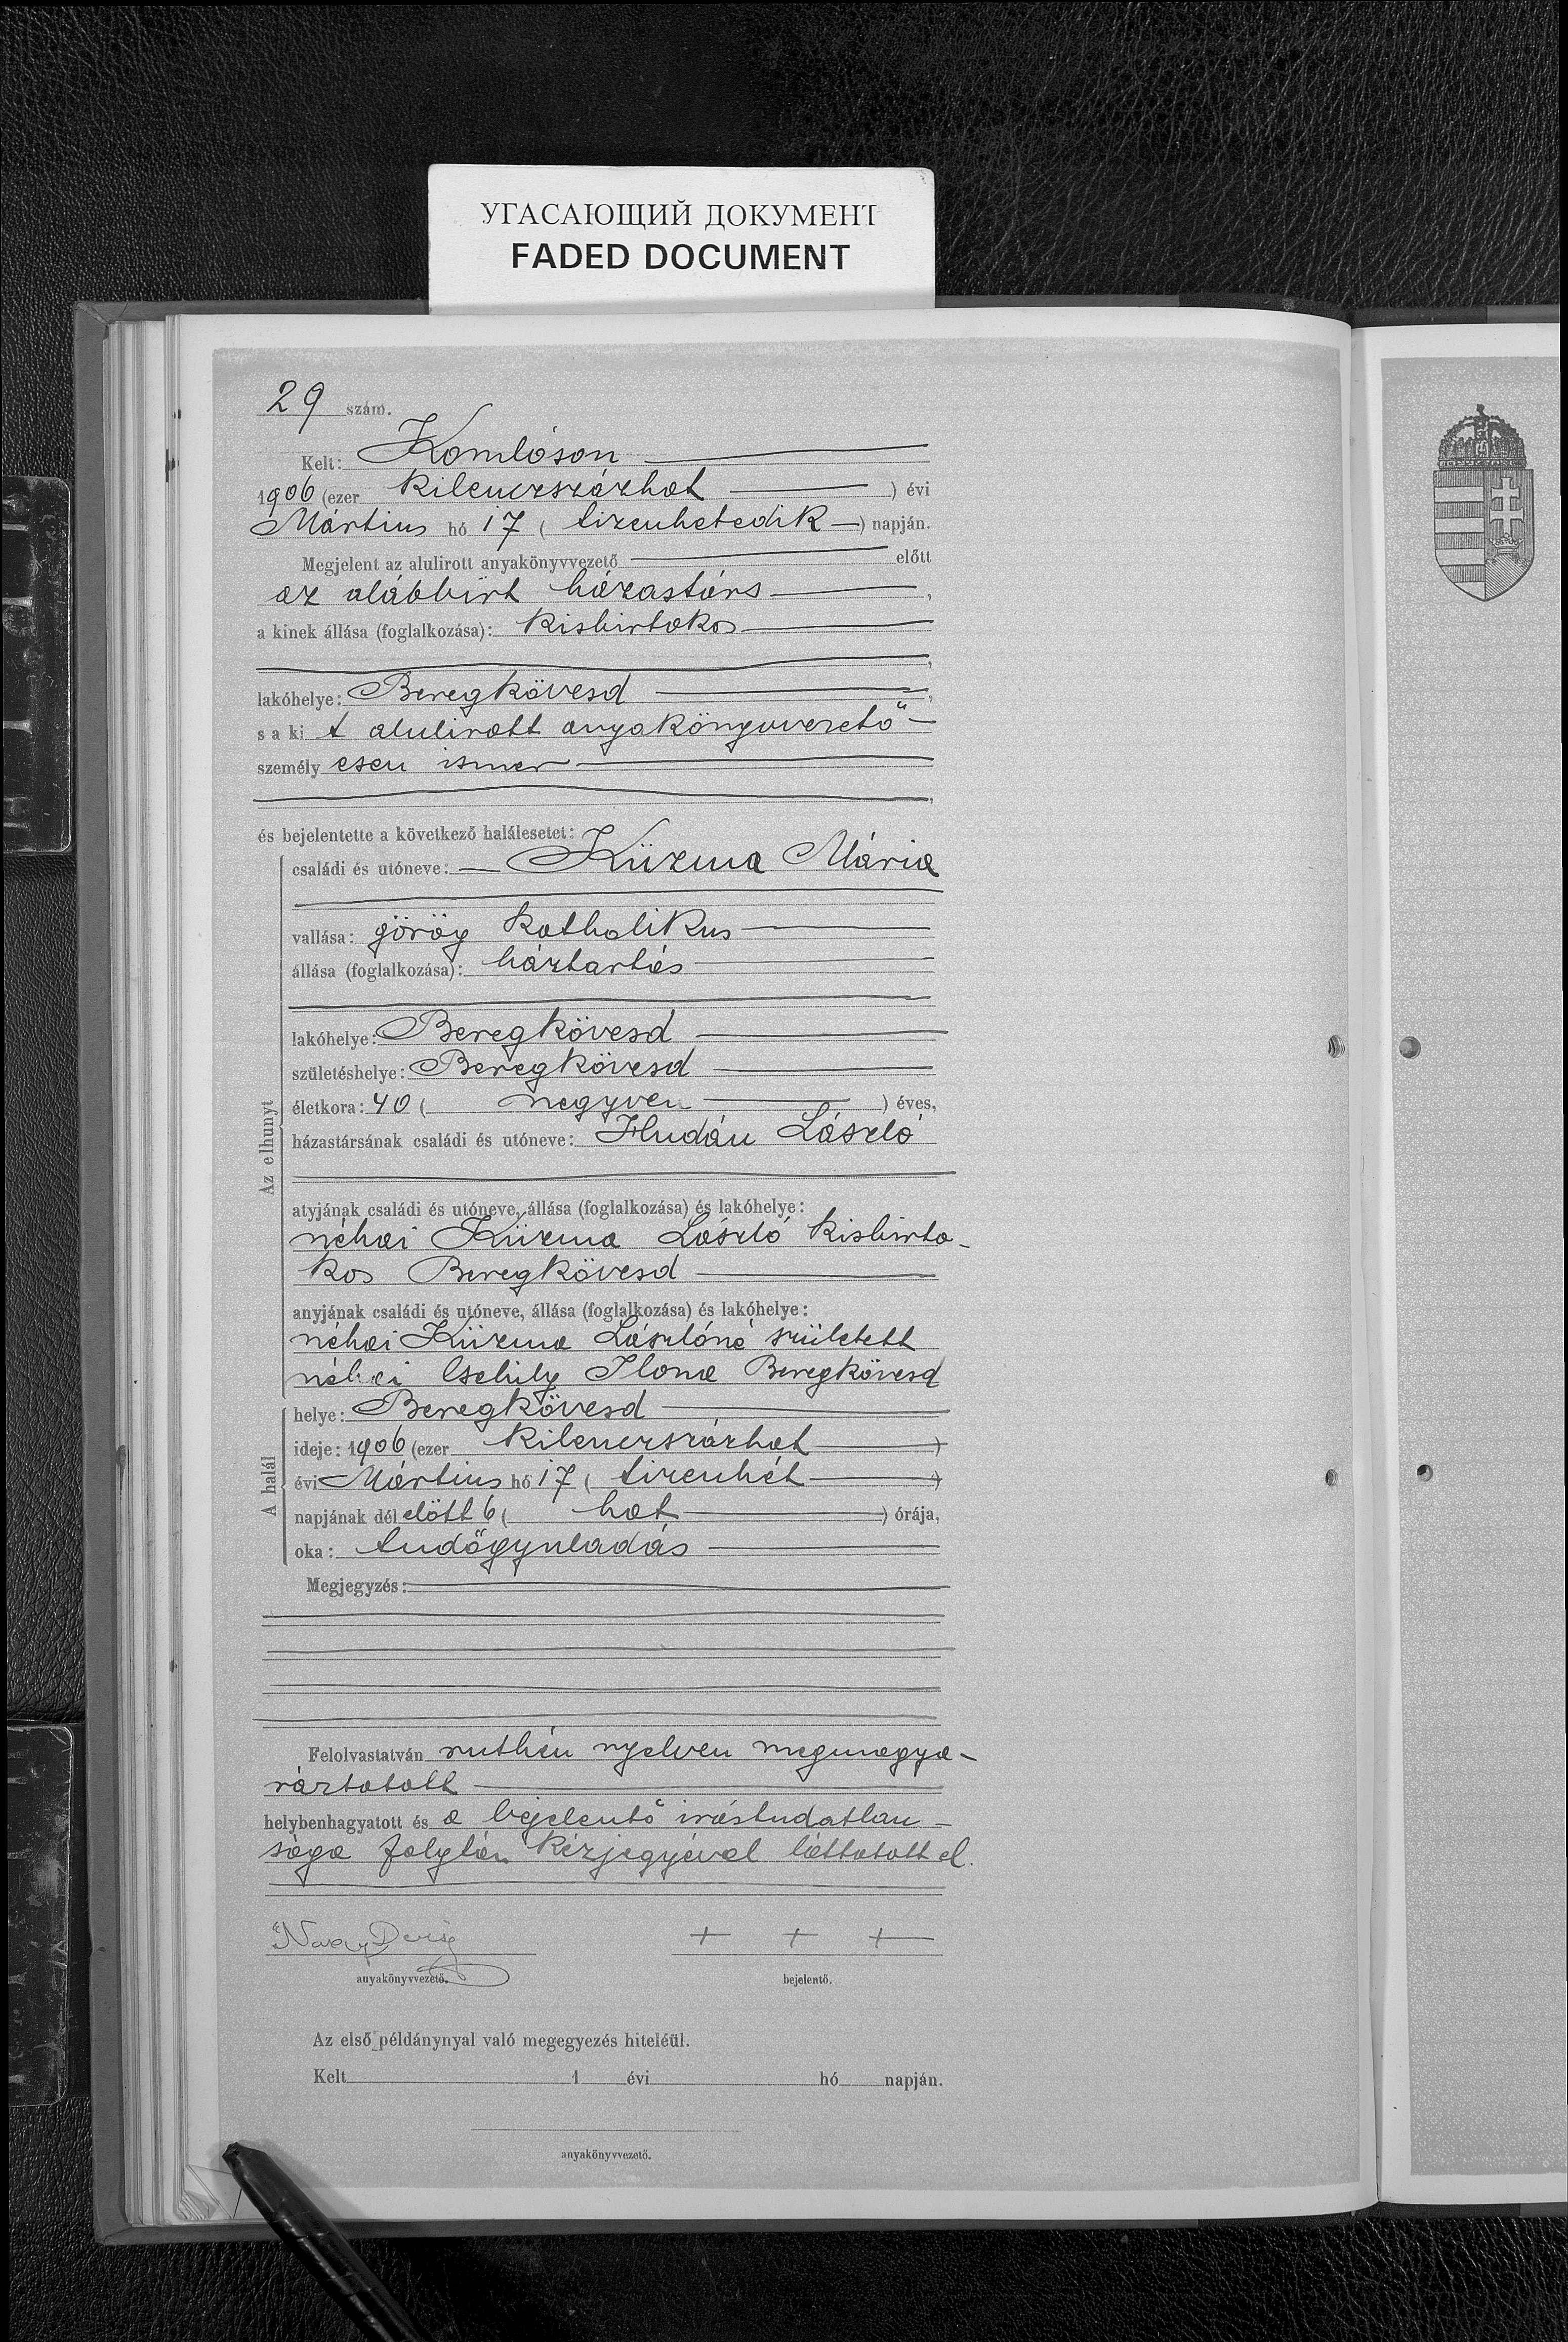 УГАСАЮЩИЙ ДОКУМЕНТ
FADED DOCUMENT
29 szám.
Kelt: Komlóson
1906 (ezer kilenczszázhat ) évi
Mártius hó 17 ( tizenhetedik ) napján.
Megjelent az alulirott anyakönyvvezető előtt
az alábbirt házastárs ,
a kinek állása (foglalkozása): kisbirtokos
,
lakóhelye: Beregkövesd ,
s a ki t alulirott anyakönyvvezető
személy esen ismer
,
és bejelentette a következő halálesetet:
Az elhunyt
családi és utóneve: Küzma Mária
vallása: görög katholikus
állása (foglalkozása): háztartás
lakóhelye: Beregkövesd
születéshelye: Beregkövesd
életkora: 40 ( negyven ) éves,
házastársának családi és utóneve: Hudán László
atyjának családi és utóneve, állása (foglalkozása) és lakóhelye:
néhai Küzma László kisbirto-
kos Beregkövesd
anyjának családi és utóneve, állása (foglalkozása) és lakóhelye:
néhai Küzma Lászlóné született
néhai Csehily Ilona Beregkövesd
A halál
helye: Beregkövesd
ideje: 1906 (ezer kilenczszázhat )
évi Mártius hó 17 ( tizenhét )
napjának dél előtt 6 ( hat ) órája,
oka: tudőgyuladás
Megjegyzés:
Felolvastatván ruthén nyelven megmagya-
ráztatott
helybenhagyatott és a bejelentő irástudatlan-
sága folytán kézjegyével láttatott el.
Nagy + + +
anyakönyvvezető. bejelentő.
Az első példánynyal való megegyezés hiteléül.
Kelt 1 évi hó napján.
anyakönyvvezető.